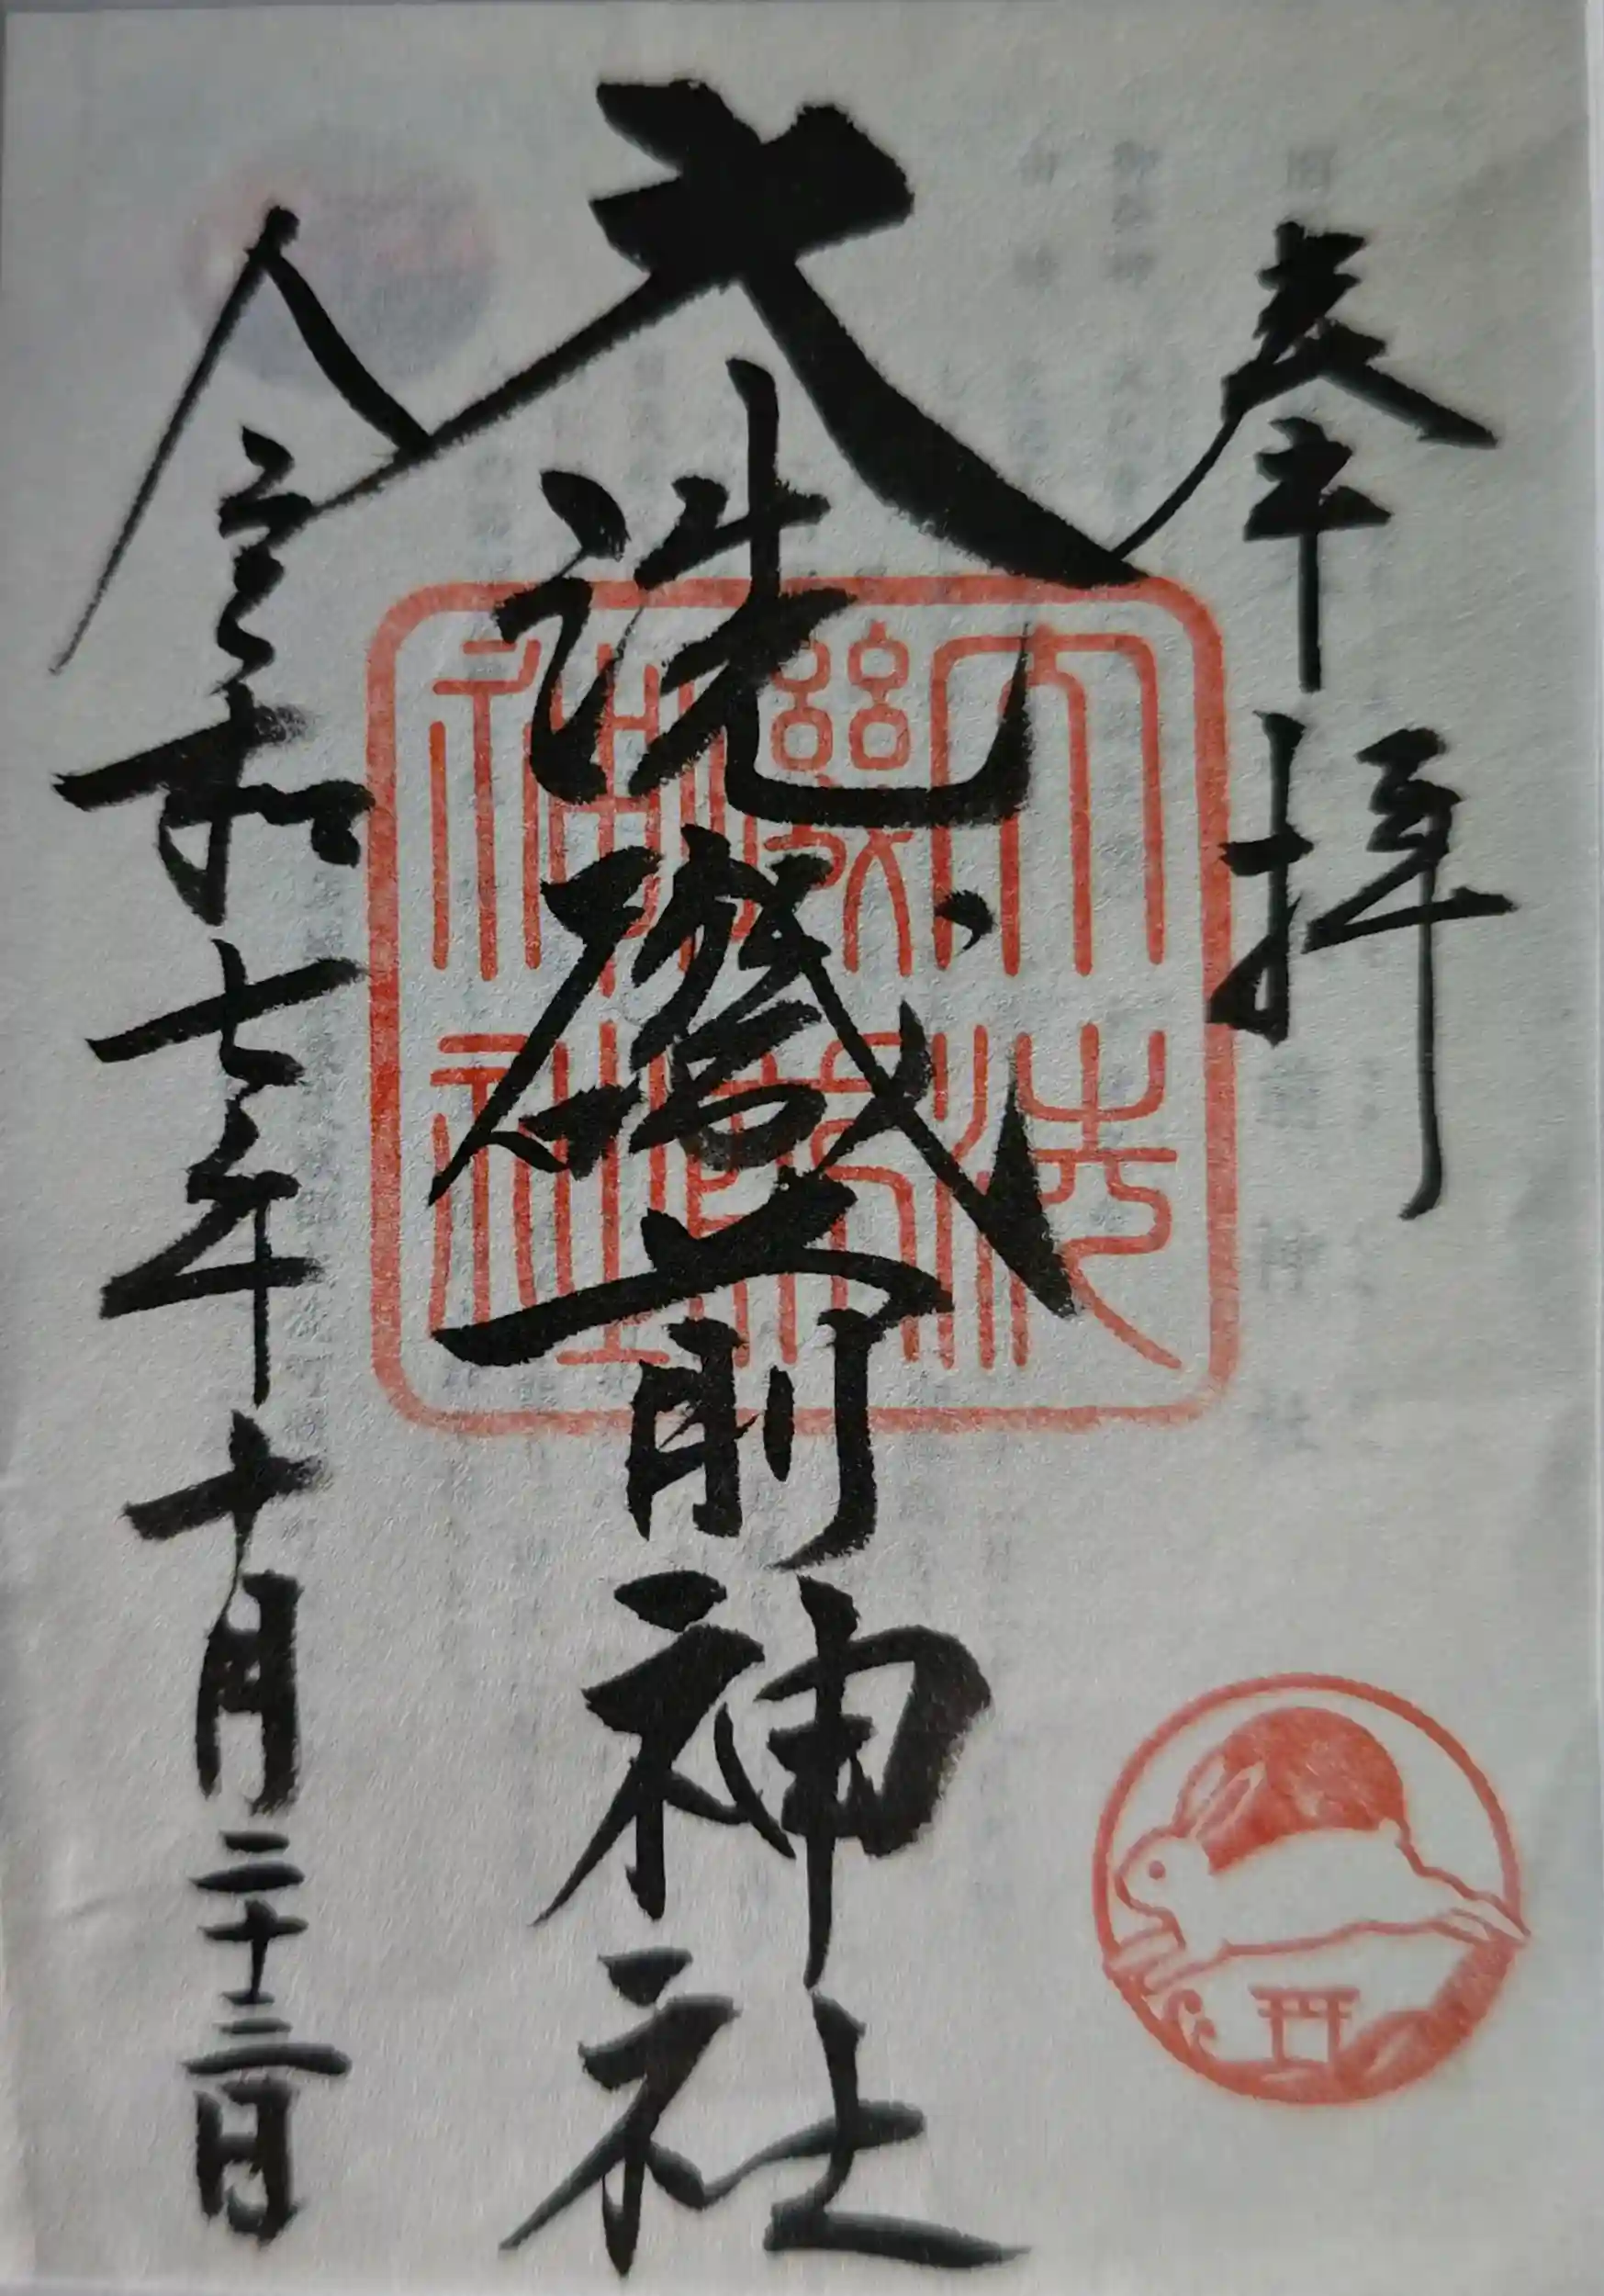 奉拝
大洗磯前神社
大洗
磯前
神社
令和七年十月二十三日